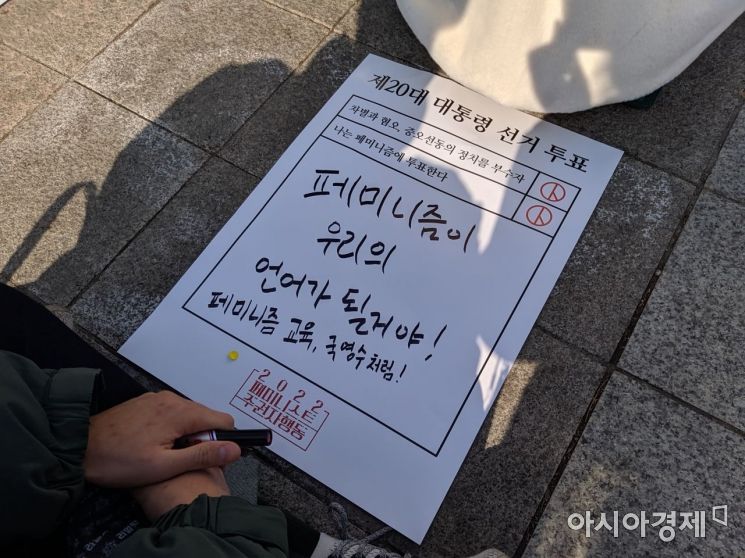 제20대 대통령 선거 투표
차별과 혐오, 증오선동의 정치를 부수자
나는 페미니즘에 투표한다
페미니즘이
우리의
언어가 될거야!
페미니즘 교육, 국영수처럼!
2022
페미니스트
주권자행동
아시아경제